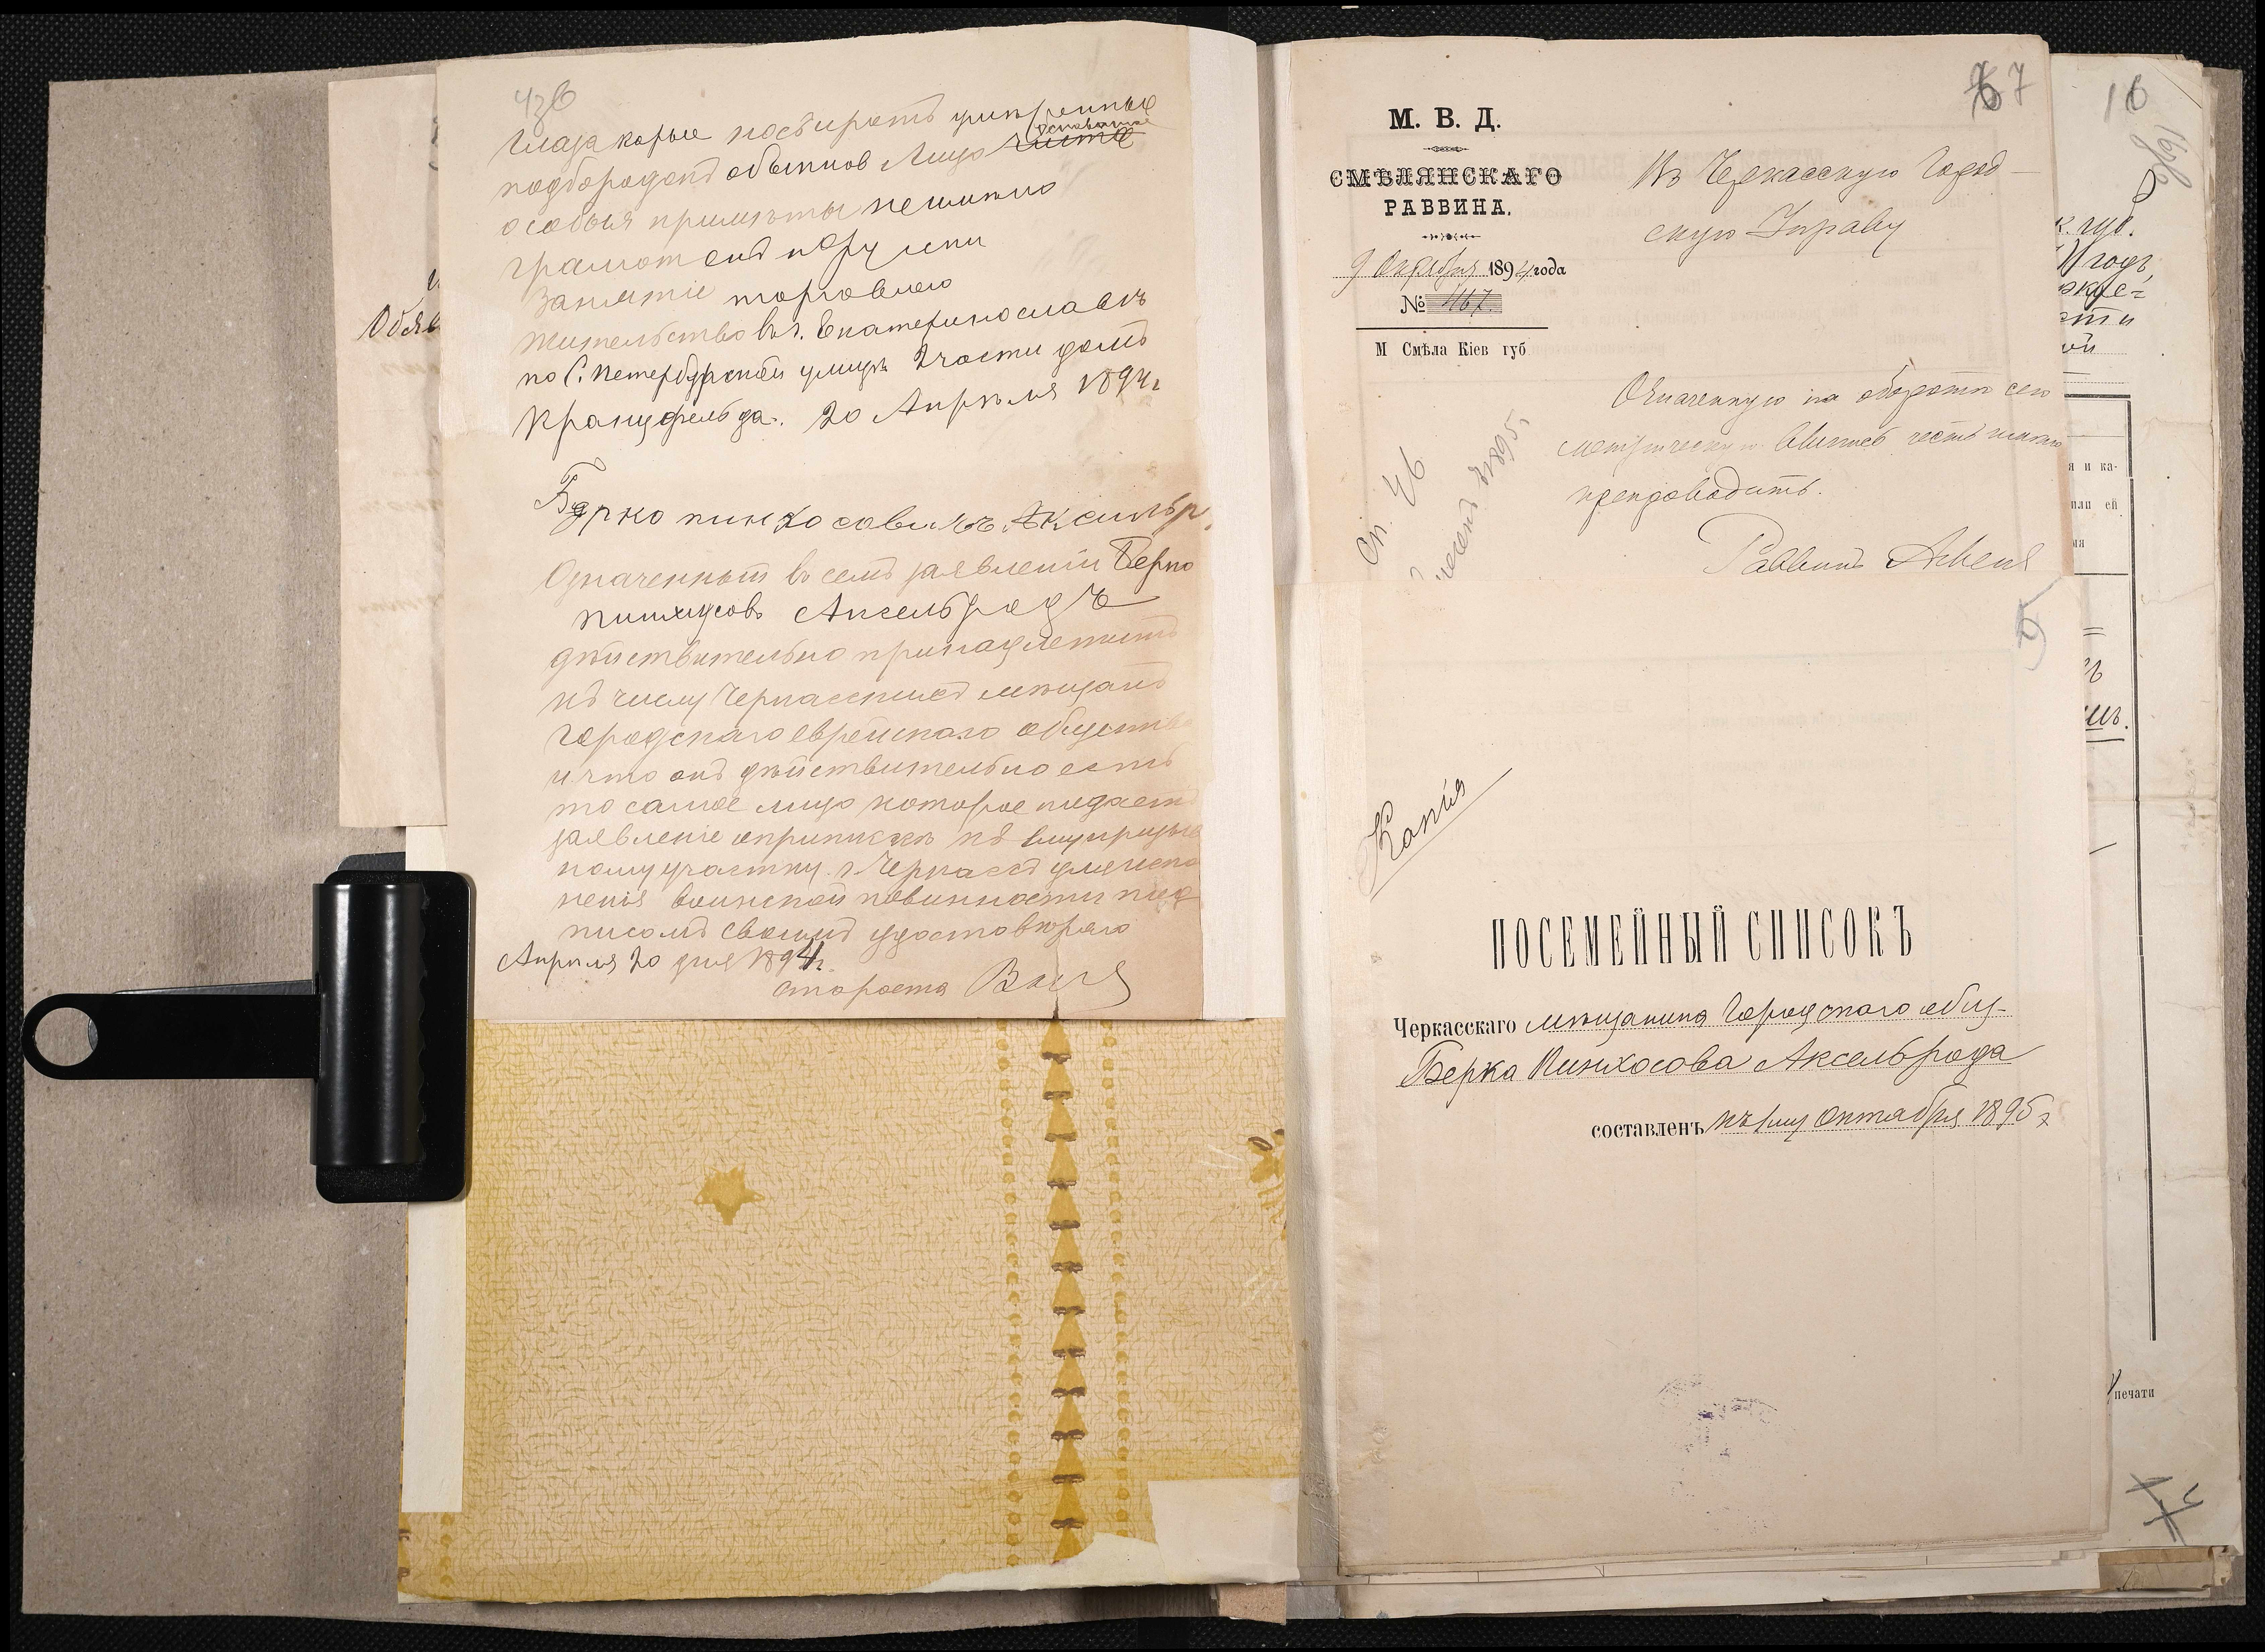 глаза карые нос ширатъ умѣренные
подбородокъ обыкнов Лицо чистое
особыя примѣты неимѣю
Занятіе торговлею
жительство въ г. Екатеринославѣ
по С. Петербургской улицѣ 2 части домъ
Кранцфельда. 20 Апрѣля 1894 г
Берко пинхосовичъ Аксельр.
Означенный въ семъ заявленіи Берко
пинхусовъ Аксельродъ
дѣйствительно принадлежитъ
къ числу Черкасскихъ мѣщанъ
городскаго еврейскаго общества
и что онъ дѣйствительно есть
то самое лицо которое подаетъ
заявленіе о припискѣ къ призыв
ному участку г. Черкассъ для испо
ненія воинской повинности под
писомъ своимъ удостовѣряю
Апрѣля 20 дня 1894 г.
староста
67
М. В. Д.
СМѢЛЯНСКАГО
РАВВИНА.
9 Октября 1894 года
№ 467.
М Смѣла Кіев губ
Въ Черкасскую Город-
скую Управу
Означенную на оборотѣ сего
метрическую выпись честь имѣю
препроводить.
Раввинъ
Сп. 46
1895 г.
Копія
ПОСЕМЕЙНЫЙ СПИСОКЪ
Черкасскаго мѣщанина Городского общ-
Берка Пинхосова Аксельрода
составленъ къ 1му Октября 1895 г
16
к. губ.
годъ
сти
ой
я и ка-
или ей
мя
печати